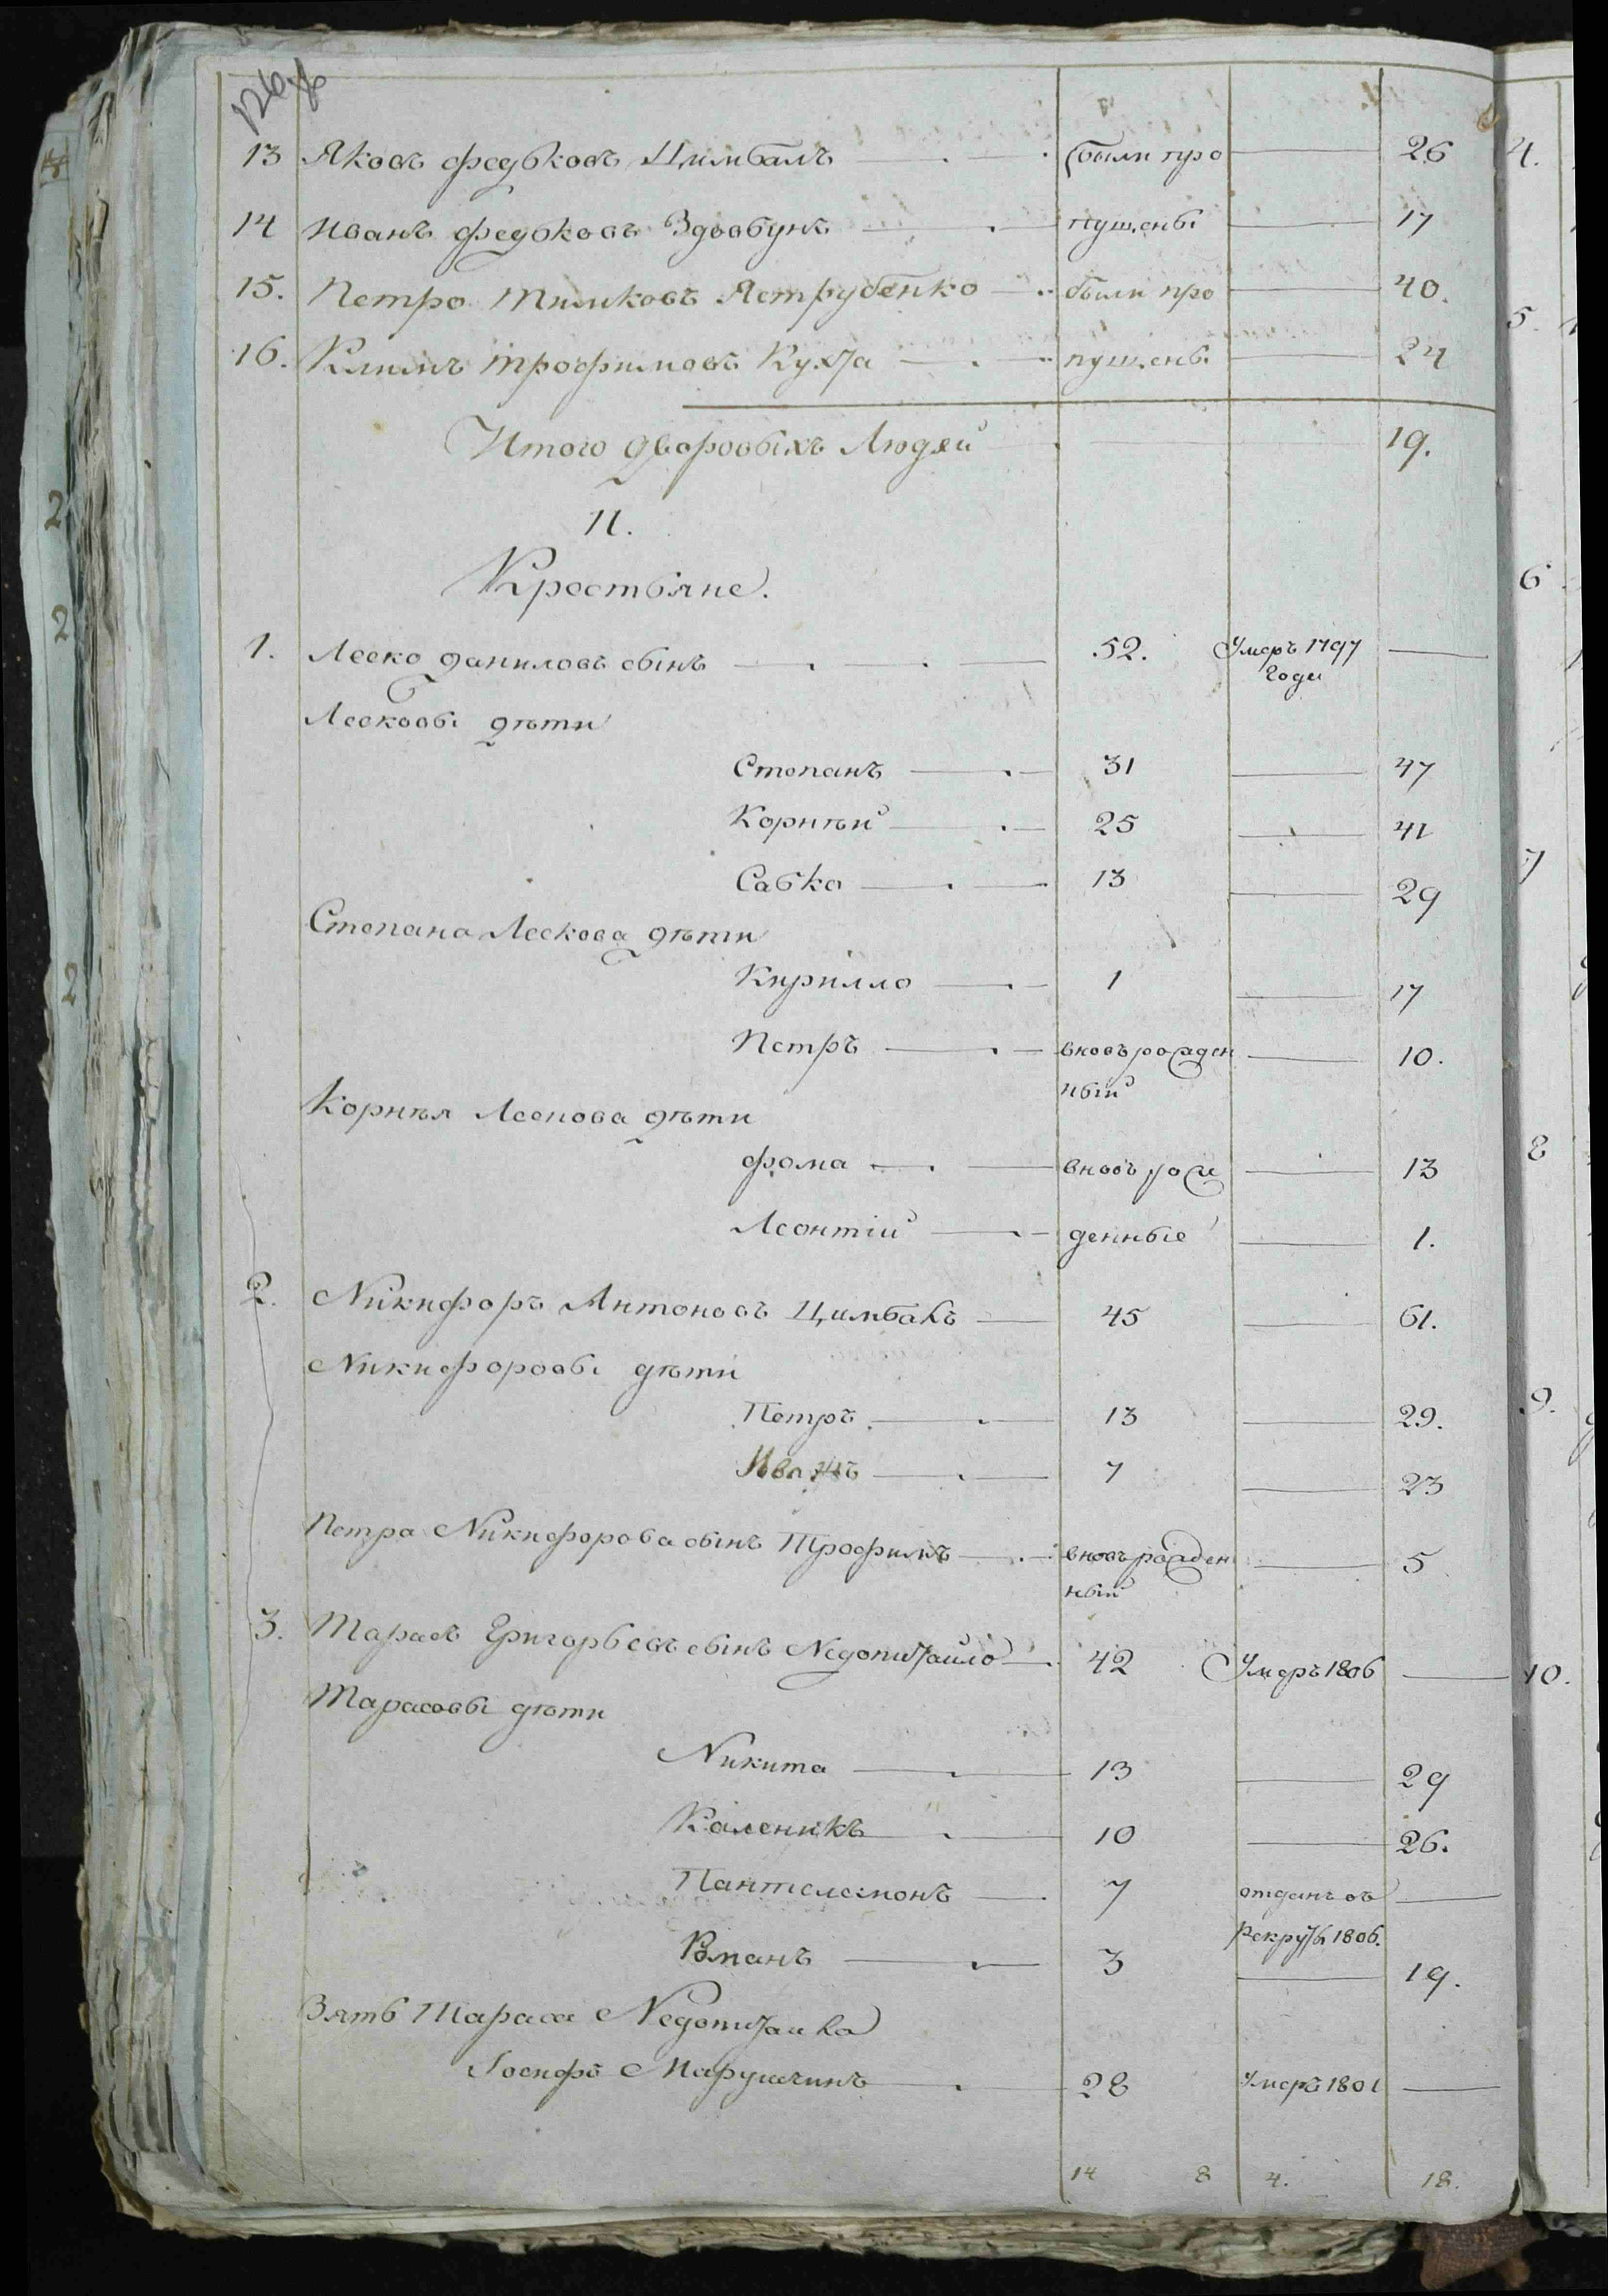 13 Яковъ Федьковъ Цимбалъ были про 26
14 Иванъ Федьковъ Вдовбунъ пущены 17
15. Петро Тимковъ Яструбенко были про 40.
16. Климъ Трофимовъ Кухта пущены 24
Итого дворовыхъ Людей 19.
II.
Крестьяне.
1. Леско Даниловъ сынъ 52. Умеръ 1797 года
Лесковы дѣти
Степанъ 31 47
Корнѣй 25 41
Савка 13 29
Степана Лескова дѣти
Кирилло 1 17
Петръ вновьрожден 10.
ный
Корнѣя Лескова дѣти
Фома вновь рож 13
Леонтiй денные 1.
2. Никифоръ Антоновъ Цимбалъ 45 61.
Никифоровы дѣти
Петръ 13 29.
Иванъ 7 23
Петра Никифорова сынъ Трофимъ вновьрожден 5
ный
3. Тарасъ Григорьевъ сынъ Недопитайло 42 Умеръ 1806
Тарасовы дѣти
Никита 13 29
Каленикъ 10 26.
Пантелемонъ 7 отданъ въ
Рекруты 1806.
Романъ 3 19.
Зять Тараса Недопитайла
Iосифъ Марушчинъ 28 Умеръ 1801
14 8 4. 18.